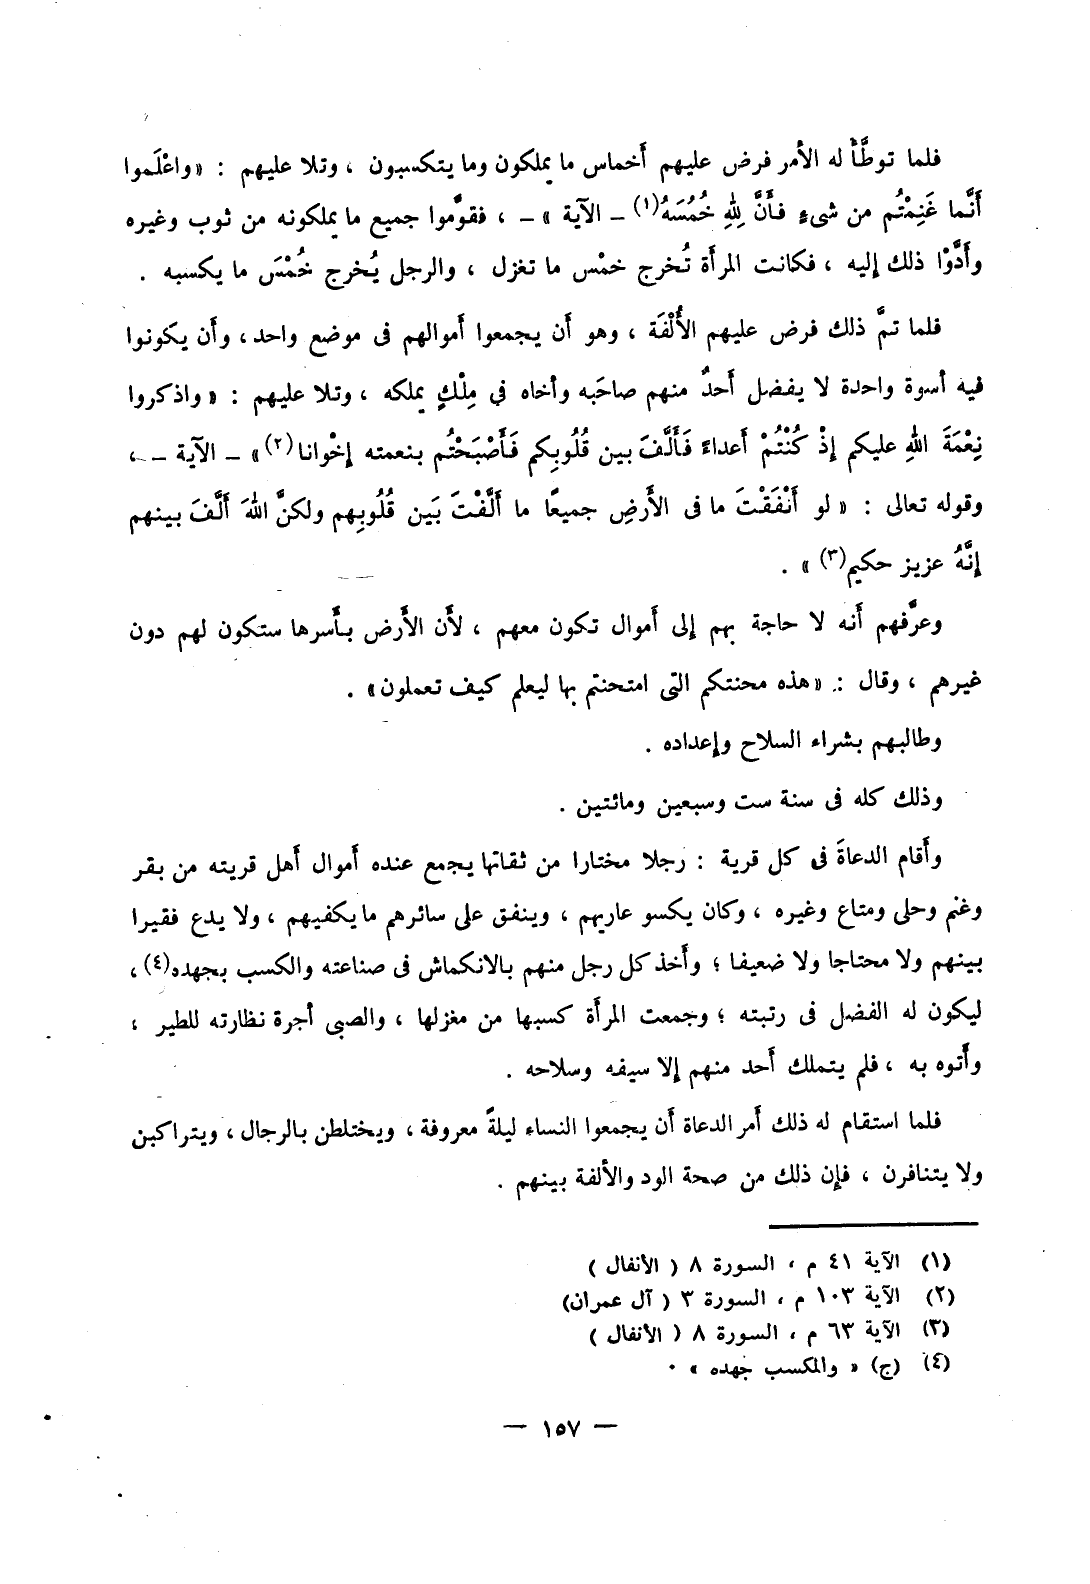 فلما توطَّأ له الأمر فرض عليهم أَخماس ما يملكون وما يتكسبون ، وتلا عليهم : «واعْلَموا
أَنَّما غَنِمْتُم من شىءٍ فأَنَّ لِلهِ خُمُسَهُ(١) ـ الآية »ـ ، فقوَّموا جميع ما يملكونه من ثوب وغيره
وأَدَّوْا ذلك إليه ، فكانت المرأة تُخرج خمْس ما تغزل ، والرجل يُخرج خُمْسَ ما يكسبه .
فلما تمَّ ذلك فرض عليهم الأُلْفَة ، وهو أن يجمعوا أموالهم فى موضع واحد، وأن يكونوا
فيه أسوة واحدة لا يفضل أَحدٌ منهم صاحَبه وأخاه في مِلْكٍ يملكه ، وتلا عليهم : «واذكروا
نِعْمَةَ اللهِ عليكم إذْ كُنْتُمْ أعداءً فَأَلَّفَ بين قُلُوبِكم فَأَصْبَحْتُم بنعمته إخْوانا(٢)» ـ الآية ـ ،
وقوله تعالى : « لو أَنْفَقْتَ ما فى الأَرضِ جميعًا ما أَلَّفْتَ بَين قُلُوبِهم ولكنَّ اللهَ أَلَّفَ بينهم
إنَّهُ عزيز حكيم(٣) » .
وعرَّفهم أَنه لا حاجة بهم إلى أَموال تكون معهم ، لأَن الأَرض بأَسرها ستكون لهم دون
غيرهم ، وقال : «هذه محنتكم التى امتحنتم بها ليعلم كيف تعملون» .
وطالبهم بشراء السلاح وإعداده .
وذلك كله فى سنة ست وسبعين ومائتين .
وأَقام الدعاةَ فى كل قرية : رجلا مختارا من ثقاتها يجمع عنده أَموال أَهل قريته من بقر
وغنم وحلى ومتاع وغيره ، وكان يكسو عاريهم ، وينفق على سائرهم ما يكفيهم ، ولا يدع فقيرا
بينهم ولا محتاجا ولا ضعيفا ؛ وأَخذ كل رجل منهم بالانكماش فى صناعته والكسب بجهده(٤) ،
ليكون له الفضل فى رتبته ؛ وجمعت المرأة كسبها من مغزلها ، والصبى أجرة نظارته للطير ،
وأَتوه به ، فلم يتملك أَحد منهم إلا سيفه وسلاحه .
فلما استقام له ذلك أَمر الدعاة أن يجمعوا النساء ليلةً معروفة ، ويختلطن بالرجال ، ويتراكبن
ولا يتنافرن ، فإن ذلك من صحة الود والألفة بينهم .
(١) الآية ٤١ م ، السورة ٨ ( الأنفال )
(٢) الآية ١٠٣ م ، السورة ٣ ( آل عمران)
(٣) الآية ٦٣ م ، السورة ٨ ( الأنفال )
(٤) (ج) « والمكسب جهده » ٠
— ١٥٧ —